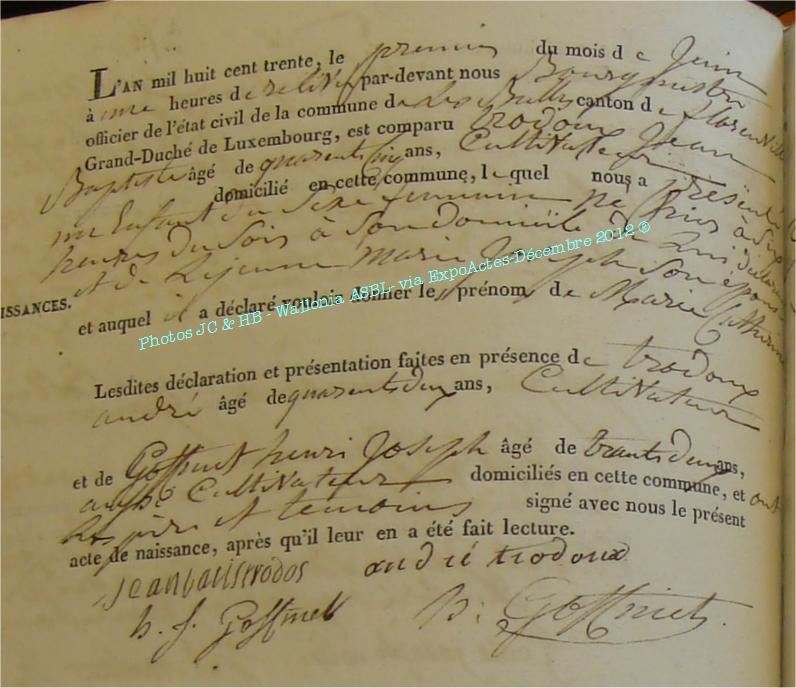 L'AN mil huit cent trente, le premier du mois de Juin
à une heures de relevé par-devant nous Bourgmestre
officier de l'état civil de la commune de les Bulles canton de florenville
Grand-Duché de Luxembourg, est comparu trodoux Jean
Baptiste âgé de quarent cinq ans, Cultivateur
domicilié en cette commune, lequel nous a présenté
un Enfant du Sexe feminin né
heures du Soir à Son domicile de Lui déclarant
et de Lejeune Marie Joseph Son épouse
ISSANCES.
et auquel il a déclaré vouloir donner le prénom de Marie Catherine
Photos JC & HB - Wallonia ASBL- via ExpoActes-Décembre 2012 ®
Lesdites déclaration et présentation faites en présence de trodoux
andré âgé de quarent deux ans, Cultivateur
et de Goffinet henri Joseph âgé de trante deux ans,
aussi Cultivateur domiciliés en cette commune, et ont
les père et temoins signé avec nous le présent
acte de naissance, après qu'il leur en a été fait lecture.
andré trodoux
h. j. Goffinet
Goffinet